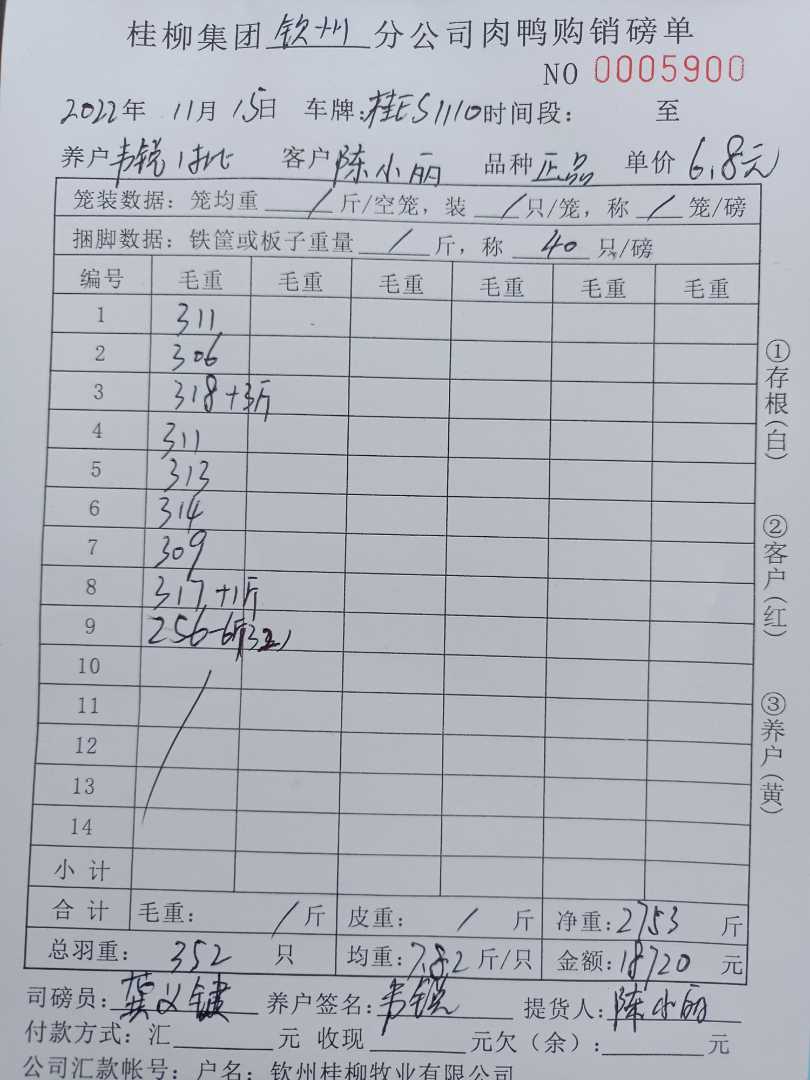 桂柳集团钦州分公司肉鸭购销磅单
NO 0005900
2022年 11月 15日 车牌:桂ES1110时间段: 至
养户韦锐 1批 客户陈小丽 品种正品 单价6.8元
笼装数据:笼均重 / 斤/空笼,装 / 只/笼,称 / 笼/磅
捆脚数据:铁筐或板子重量 / 斤,称 40 只/磅
编号 毛重 毛重 毛重 毛重 毛重 毛重
1 311
2 306
3 318+3斤
4 311
5 313
6 314
7 309
8 317+1斤
9 256-6斤
10
11
12
13
14
小计
合计 毛重: / 斤 皮重: / 斤 净重:2753 斤
总羽重: 352 只 均重:7.82斤/只 金额:18720元
司磅员:龚义键 养户签名:韦锐 提货人:陈小丽
付款方式:汇 元 收现 元欠(余): 元
公司汇款帐号:户名:钦州桂柳牧业有限公司
①存根(白)
②客户(红)
③养户(黄)